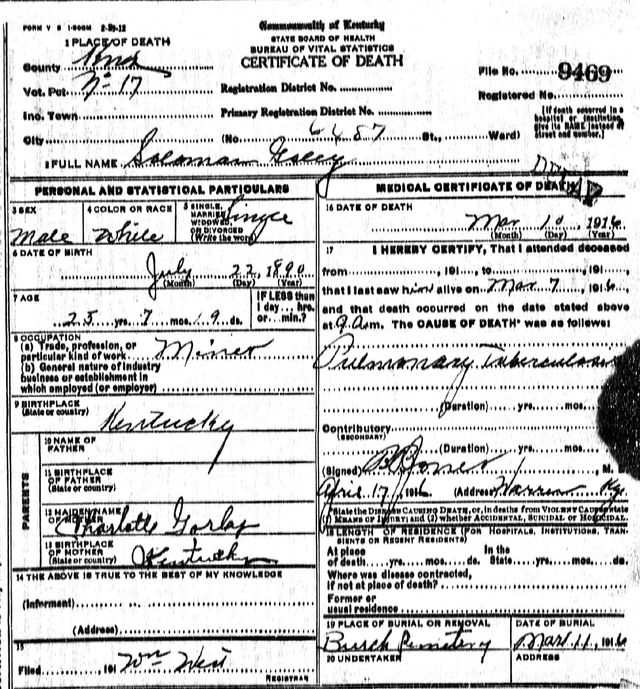 FORM V S 1-500M 2-20-12
Commonwealth of Kentucky
STATE BOARD OF HEALTH
BUREAU OF VITAL STATISTICS
CERTIFICATE OF DEATH
1 PLACE OF DEATH
County Knox
Vot. Pct No 17
Inc. Town
City
Registration District No.
Primary Registration District No.
(No. 6487 St., Ward)
File No. 9469
Registered No.
[If death occurred in a
hospital or institution,
give its NAME instead of
street and number.]
2 FULL NAME Soloman
PERSONAL AND STATISTICAL PARTICULARS
3 SEX
Male
4 COLOR OR RACE
White
5 SINGLE,
MARRIED,
WIDOWED,
OR DIVORCED
(Write the word)
Single
6 DATE OF BIRTH
July 22, 1890
(Month) (Day) (Year)
7 AGE
25 yrs. 7 mos. 19 ds.
IF LESS than
1 day...hrs.
or...min.?
8 OCCUPATION
(a) Trade, profession, or
particular kind of work Miner
(b) General nature of industry
business or establishment in
which employed (or employer)
9 BIRTHPLACE
(State or country)
Kentucky
PARENTS
10 NAME OF
FATHER
11 BIRTHPLACE
OF FATHER
(State or country)
12 MAIDEN NAME
OF MOTHER
Charlotte
13 BIRTHPLACE
OF MOTHER
(State or country)
Kentucky
14 THE ABOVE IS TRUE TO THE BEST OF MY KNOWLEDGE
(Informant)
(Address)
15
Filed, 191 Wm West
REGISTRAR
MEDICAL CERTIFICATE OF DEATH
16 DATE OF DEATH
Mar 10, 1916
(Month) (Day) (Year)
17 I HEREBY CERTIFY, That I attended deceased
from, 191, to, 191,
that I last saw him alive on Mar 7, 1916,
and that death occurred on the date stated above
at 9 a.m. The CAUSE OF DEATH* was as follows:
Pulmonary Tuberculosis
(Duration) yrs. mos.
Contributory
(SECONDARY)
(Duration) yrs. mos.
(Signed) Jones, M.
April 17, 1916 (Address) Warren Ky.
*State the DISEASE CAUSING DEATH, or, in deaths from VIOLENT CAUSES state
(1) MEANS OF INJURY; and (2) whether ACCIDENTAL, SUICIDAL or HOMICIDAL.
18 LENGTH OF RESIDENCE (FOR HOSPITALS, INSTITUTIONS, TRANSIENTS OR RECENT RESIDENTS)
At place
of death yrs. mos. ds.
In the
State yrs. mos. ds.
Where was disease contracted,
if not at place of death?
Former or
usual residence
19 PLACE OF BURIAL OR REMOVAL
Burch Cemetery
DATE OF BURIAL
Mar 11, 1916
20 UNDERTAKER
ADDRESS